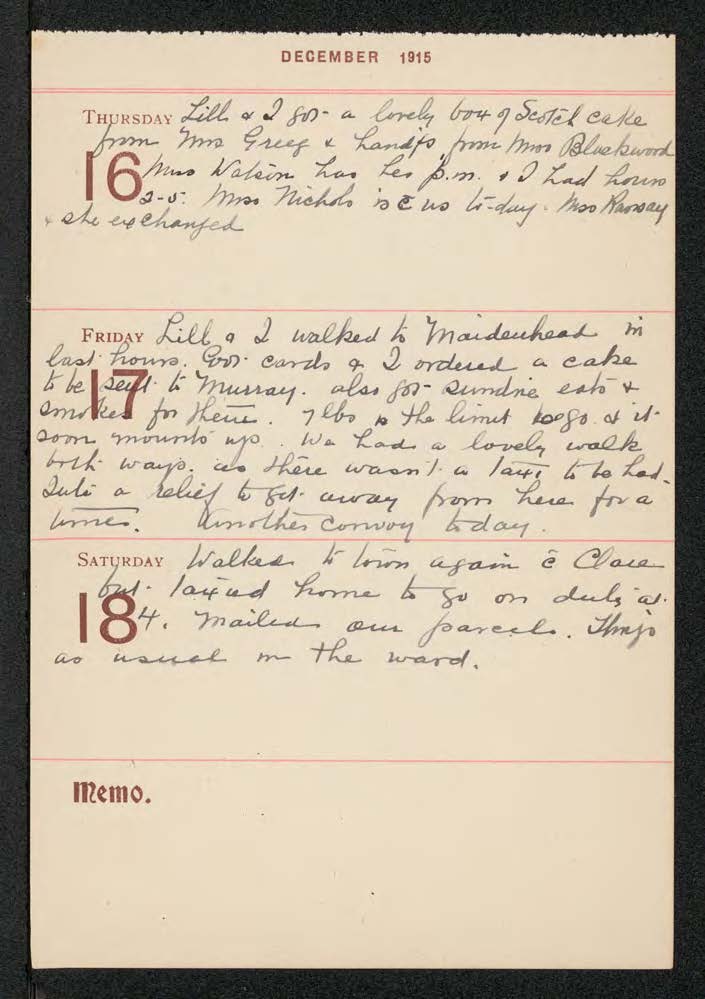 DECEMBER 1915
THURSDAY Lill & I got a lovely box of Scotch cake
from Mrs Greeg & handfs from Miss Blackwood
16 Miss Watson has her p.m. & I had hours
2-5. Miss Nichols is c̄ us to-day. Miss Ramsay
& she exchanged
FRIDAY Lill & I walked to Maidenhead in
last hours. Got cards & I ordered a cake
17 to be sent to Murray. also got sundrie eats &
smokes for them. 7 lbs is the limit to go & it
soon mounts up. We had a lovely walk
both ways. as there wasn't a taxi to be had.
Quite a relief to get away from here for a
time. Another convoy today.
SATURDAY Walked to town again c̄ Clare
but taxied home to go on duty at
18 4. Mailed our parcels. Things
as usual in the ward.
Memo.